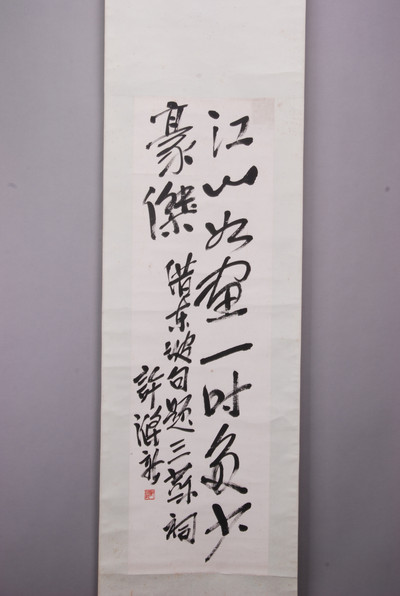 江山如画一时多少
豪傑
借东坡句题三苏祠
許滌新